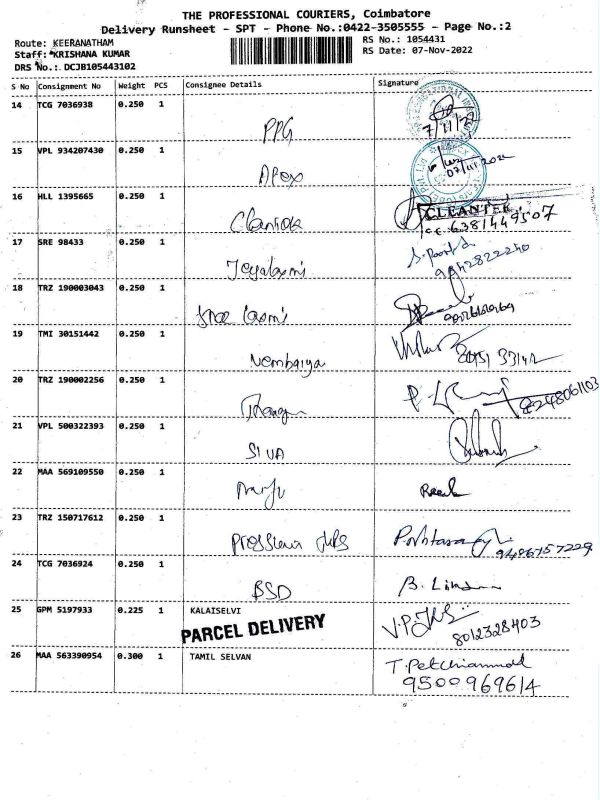 THE PROFESSIONAL COURIERS, Coimbatore
Delivery Runsheet - SPT - Phone No.:0422-3505555 - Page No.:2
Route: KEERANATHAM
RS No.: 1054431
Staff: *KRISHANA KUMAR
RS Date: 07-Nov-2022
DRS No.: DCJB105443102
S No Consignment No Weight PCS Consignee Details Signature
14 TCG 7036938 0.250 1
PPG
7/11/22
15 VPL 934207430 0.250 1
Apex
07/11/2022
16 HLL 1395665 0.250 1
CLEANTEK
6381449507
17 SRE 98433 0.250 1
Jeyalaxmi
9942822240
18 TRZ 190003043 0.250 1
Sree Laxmi
19 TMI 30151442 0.250 1
Nembaiya
20 TRZ 190002256 0.250 1
8248061103
21 VPL 500322393 0.250 1
SIVA
22 MAA 569109550 0.250 1
23 TRZ 150717612 0.250 1
9486757229
24 TCG 7036924 0.250 1
BSD
25 GPM 5197933 0.225 1 KALAISELVI
PARCEL DELIVERY
8012328403
26 MAA 563390954 0.300 1 TAMIL SELVAN
T. Petchiammal
9500969614